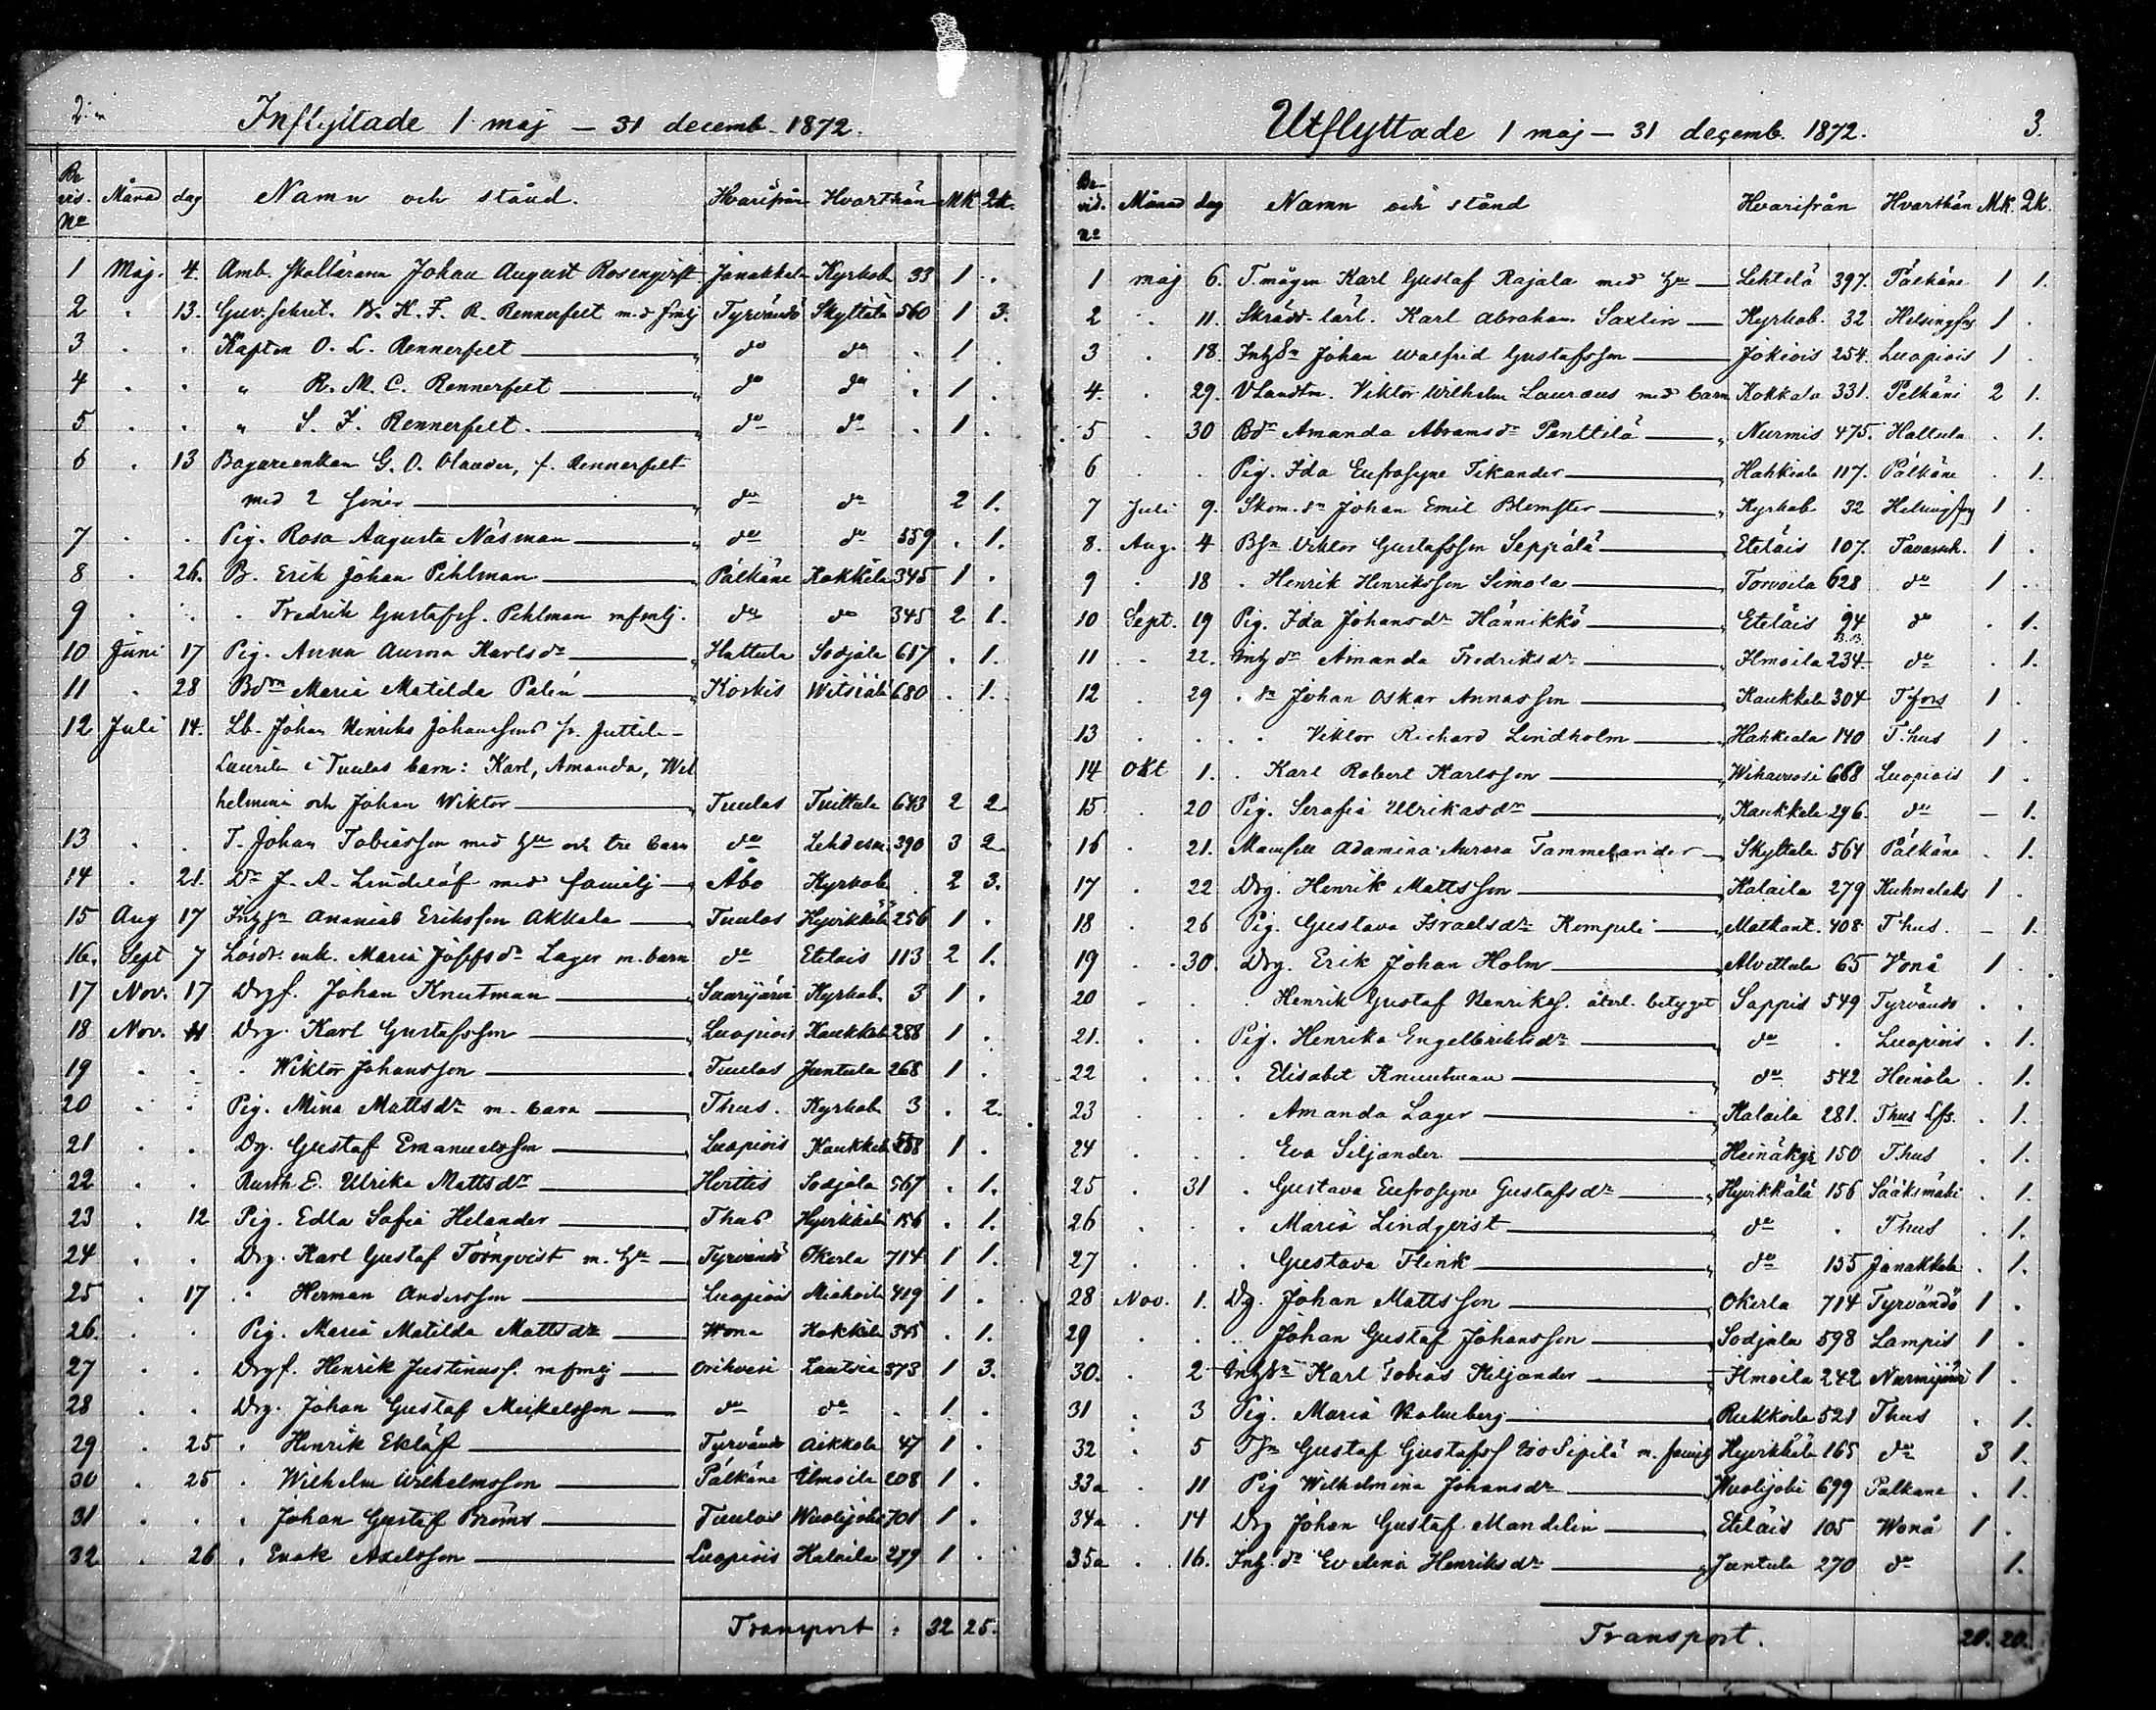 2.
Inflyttade 1 maj – 31 decemb. 1872.
Be vis. No Månad dag Namn och stånd. Hvarifrån Hvarthän MK QK.
1 Maj. 4. Amb. Skollärann Johan August Rosenqvist Janakkala Kyrkob. 33 1 .
2 . 13. Guv. sekret. B. K. F. R. Rennerfelt m.d fmlj Tyrvändö Skyttälä 560 1 3.
3 . . Kapten O. L. Rennerfelt do do . 1 .
4 . . " R. M. C. Rennerfelt do do . 1 .
5 . . " S. F. Rennerfelt. do do . 1 .
6 . 13 Bagareenkan G. O. Olander, f. Rennerfelt
med 2 söner do do 2 1.
7 . . Pig. Rosa Augusta Näsman do do 559 . 1.
8 . 26. B. Erik Johan Pihlman Pälkäne Kokkila 345 1 .
9 . . . Fredrik Gustafss. Pehlman mfmlj. do do 345 2 1.
10 Juni 17 Pig. Anna Aurora Karlsdr Hattula Sodjala 617 . 1.
11 . 28 Bdrn Maria Matilda Palén Koskis Witsiälä 680 . 1.
12 Juli 14. Lb. Johan Henriks Johanssons fr. Juttila-
Laurila i Tuulos barn: Karl, Amanda, Wil
helmina och Johan Wiktor Tuulos Tuittula 643 2 2
13 . . T. Johan Tobiasson med hu och tre barn do Lehdesm. 390 3 2
14 . 21. Dr J. A. Lindelöf med familj Åbo Kyrkob. . 2 3.
15 Aug 17 Inhsn Ananias Eriksson Akkala Tuulos Hyvikkälä 256 1 .
16. Sept 7 Lösdr. enk. Maria Josefsdr Lager m. barn do Eteläis 113 2 1.
17 Nov. 17 Drgf. Johan Knutman Saarijärvi Kyrkob. 3 1 .
18 Nov. 11 Drg. Karl Gustafsson Luopiois Kaukkala 288 1 .
19 . . . Wiktor Johansson Tuulos Juntula 268 1 .
20 . . Pig. Mina Mattsdr m. barn Thus. Kyrkob. 3 . 2.
21 . . Dg. Gustaf Emanuelsson Luopiois Kaukkala 288 1 .
22 . . Rusth. E. Ulrika Mattsdr Hvittis Sodjala 567 . 1.
23 . 12 Pig. Edla Sofia Helander Thus Hyvikkälä 156 . 1.
24 . . Drg. Karl Gustaf Törnqvist m. hu Tyrvändö Okerla 714 1 1.
25 . 17 . Herman Andersson Luopiois Miehoila 419 1 .
26. . . Pig. Maria Matilda Mattsdr Wona Kokkila 345 . 1.
27 . . Drgf. Henrik Justinuss. m fmlj Orihvesi Lautsia 373 1 3.
28 . . Drg. Johan Gustaf Mickelsson do do . 1 .
29 . 25 . Henrik Eklöf Tyrvändö Aikkola 47 1 .
30 . 25 . Wilhelm Wilhelmsson Pälkäne Ilmoila 208 1 .
31 . . . Johan Gustaf Broms Tuulos Wuolijoki 701 1 .
32 . 26 . Enok Axelsson Luopiois Kalaila 279 1 .
Transport . 32 25.
Utflyttade 1 maj – 31 decemb. 1872. 3.
Be- vid. No Månad dag Namn och stånd Hvarifrån Hvarthän Mk. QK.
1 maj 6. T. mågen Karl Gustaf Rajala med hu Lehtelä 397. Pälkäne 1 1.
2 . 11. Skrädd. lärl. Karl Abraham Saxlin Kyrkob. 32 Helsingfrs 1 .
3 . 18. Inhsn Johan Walfrid Gustafsson Jokiois 254. Luopiois 1 .
4. . 29. V Landtm. Viktor Wilhelm Lauraeus med barn Kokkala 331. Pelkäni 2 1.
5 . 30 Bdr Amanda Abramsdr Penttilä Nurmis 475. Hattula . 1.
6 . . Pig. Ida Eufrosyne Tikander Hakkiala 117. Pälkäne . 1.
7 Juli 9. Skom. sn Johan Emil Blomster Kyrkob. 32 Helsingfrs 1 .
8. Aug. 4 Bsn Viktor Gustafsson Seppälä Eteläis 107. Tavasseh. 1 .
9 . 18 . Henrik Henriksson Simola Torvoila 628 do 1 .
10 Sept. 19 Pig. Ida Johansdr Hännikkö Eteläis 94 do . 1.
11 . 22. Inhdr Amanda Fredriksdr Ilmoila 234 do . 1.
12 . 29 . sn Johan Oskar Annasson Kaukkala 304 Tfors 1 .
13 . . . . Viktor Richard Lindholm Hakkiala 140 T.hus 1 .
14 Okt 1. . Karl Robert Karlsson Wihavuosi 668 Luopiois 1 .
15 . 20 Pig. Serafia Ulrikasdr Kaukkala 296. do – 1.
16 . 21. Mamsell Adamina Aurora Tammelander Skyttälä 564 Pälkäne . 1.
17 . 22 Drg. Henrik Mattsson Kalaila 279 Kuhmalaks 1 .
18 . 26 Pig. Gustava Israelsdr Kompuli Matkant. 408 T hus. – 1.
19 . 30. Drg. Erik Johan Holm Alvettula 65 Vonå 1 .
20 . . . Henrik Gustaf Henrikss. återl. betyget Sappis 549 Tyrvändö . .
21. . . Pig. Henrika Engelbrektsdr do . Luopiois . 1.
22 . . . Elisabet Knuutman do 542 Heinola . 1.
23 . . . Amanda Lager Kalaila 281. Thus lfs. . 1.
24 . . . Eva Siljander Heinäkgs 150 T.hus . 1.
25 . 31 . Gustava Eufrosyne Gustafsdr Hyvikkälä 156 Sääksmäki . 1.
26 . . . Maria Lindqvist do . Thus . 1.
27 . . . Gustava Flink do 155 Janakkala . 1.
28 Nov. 1. Dg. Johan Mattsson Okerla 714 Tyrvändö 1 .
29 . . . Johan Gustaf Johansson Sodjala 598 Lampis 1 .
30. . 2 Inhsn Karl Tobias Kiljander Ilmoila 242 Nurmijärvi 1 .
31 . 3 Pig. Maria Holmberg Rukkoila 521 Thus . 1.
32 . 5 Tsn Gustaf Gustafss Iso Sipilä m. familj Hyvikkälä 165 do 3 1.
33a . 11 Pig Wilhelmina Johansdr Wuolijoki 699 Palkane . 1.
34a . 14 Drg Johan Gustaf Mandelin Eteläis 105 Wonå 1 .
35a . 16. Inh. dr Evelina Henriksdr Juntula 270 do 1.
Transport. 20. 20.